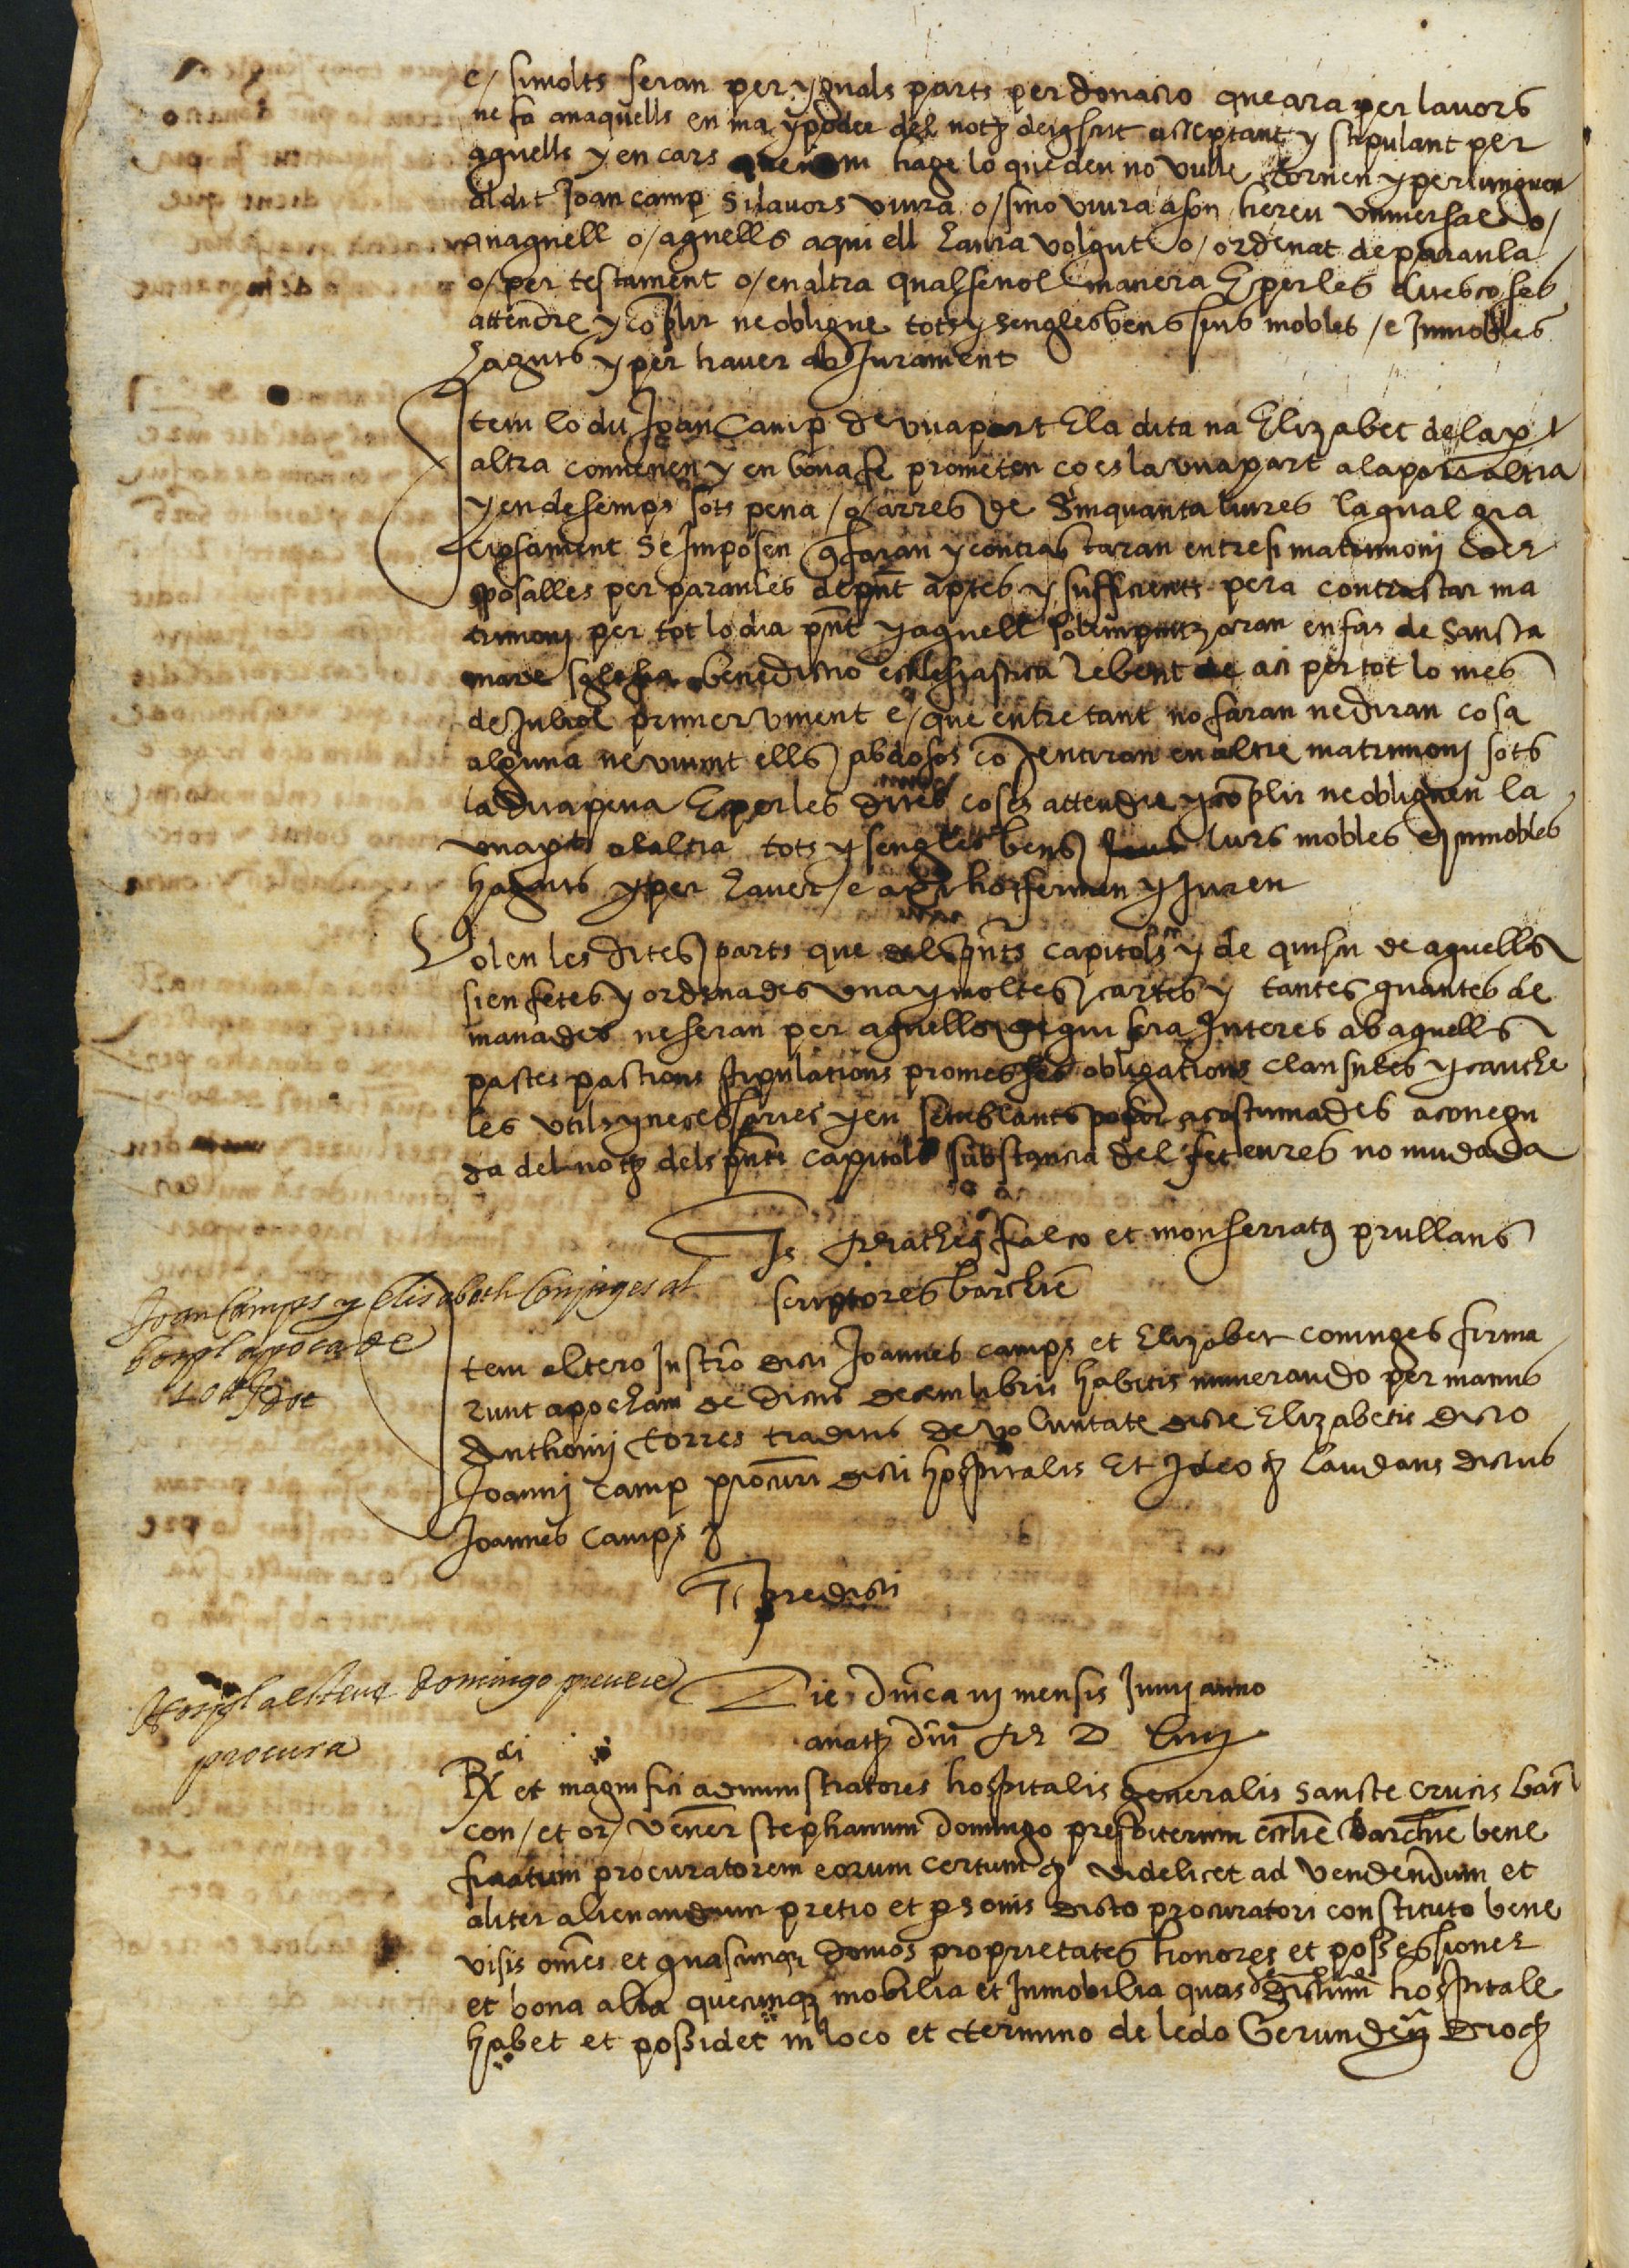 e/ si molts seran per yguals parts per donacio que ara per lauors
ne fa an aquells en ma y poder del not deiscrit acceptant y stipulant per
aquells y en cars que nom hage lo que deu no vulle tornen y pertanguen
al dit Joan camp si lauors viura o/ sino viura a son hereu vniuersal o/
an aquell o/ aquells a qui ell haura volgut o/ ordenat de paraula
o/ per testament o/ en altra qualseuol manera E per les dites coses
attendre y cōplir ne obligue tots y sengles bens seus mobles /e Inmobles
haguts y per hauer ab Jurament
Item lo dit Joan Camp de vna part E la dita na Elizabet de la pt
altra conuenen y en bona fe prometen ço es la vna part a la part altra
y en desemps sots pena /o/ arres de Sinquanta liures la qual gra
ciosament se Imposen q faran y contractaran entre si matrimoni ço es
sposalles per paraules de pnt aptes y sufficients pera contractar ma
trimoni per tot lo dia pnt y aquell solempnitzaran en fas de sancta
mare sglesia benedictio ecclesiastica rebent de aci per tot lo mes
de Juliol primer vinent e/ que entretant no faran ne diran cosa
alguna ne viuint ells abdosos cōsentiran en altre matrimoni sots
la dita pena E per les dites coses attendre y cōplir ne obliguen la
vna pt a laltra tots y sengles bens lurs mobles e Inmobles
haguts y per hauer /e axi ho fermen y Juren
Volen les dites parts que dels pnts capitols y de quiscu de aquells
sien fetes y ordenades vna y moltes cartes y tantes quantes de
manades ne seran per aquells de qui sera Interes ab aquells
pactes pactions stipulations promesses obligations clausules y cauthe
les vtils y necessaries y en semblants posar acostumades a conegu
da del not dels pnts capitols substancia del fet en res no mudada
Ts Matheus falco et monserratus prullans
scriptores barchne
Joan Camps y Elisabeth Conjuges al
hospl apoca de
10 ll
Item altero Instro dicti Joannes camps et Elizabet coniuges firma
runt apocham de dictis decem libris habitis numerando per manus
Anthonij torres traditis de voluntate dicte Elizabetis dicto
Joanni Camp procuri dicti hospitalis Et Ideo laudans dictus
Joannes Camps
Ts predicti
Hospl a esteue domingo preuere
procura
Die dnica mensis Junij anno
a nat dni M D
Rdi et magnifici administratores hospitalis generalis sancte crucis bar
con/ et or/ vener stephanum domingo presbiterum ecclie barchne bene
ficiatum procuratorem eorum certum videlicet ad vendendum et
aliter alienandum pretio et psonis dicto procuratori constituto bene
visis oms et quascunq domos proprietates honores et possessiones
et bona alia quecunq mobilia et Inmobilia quas dictum hospitale
habet et possidet in loco et termino de ledo Gerunden dioc